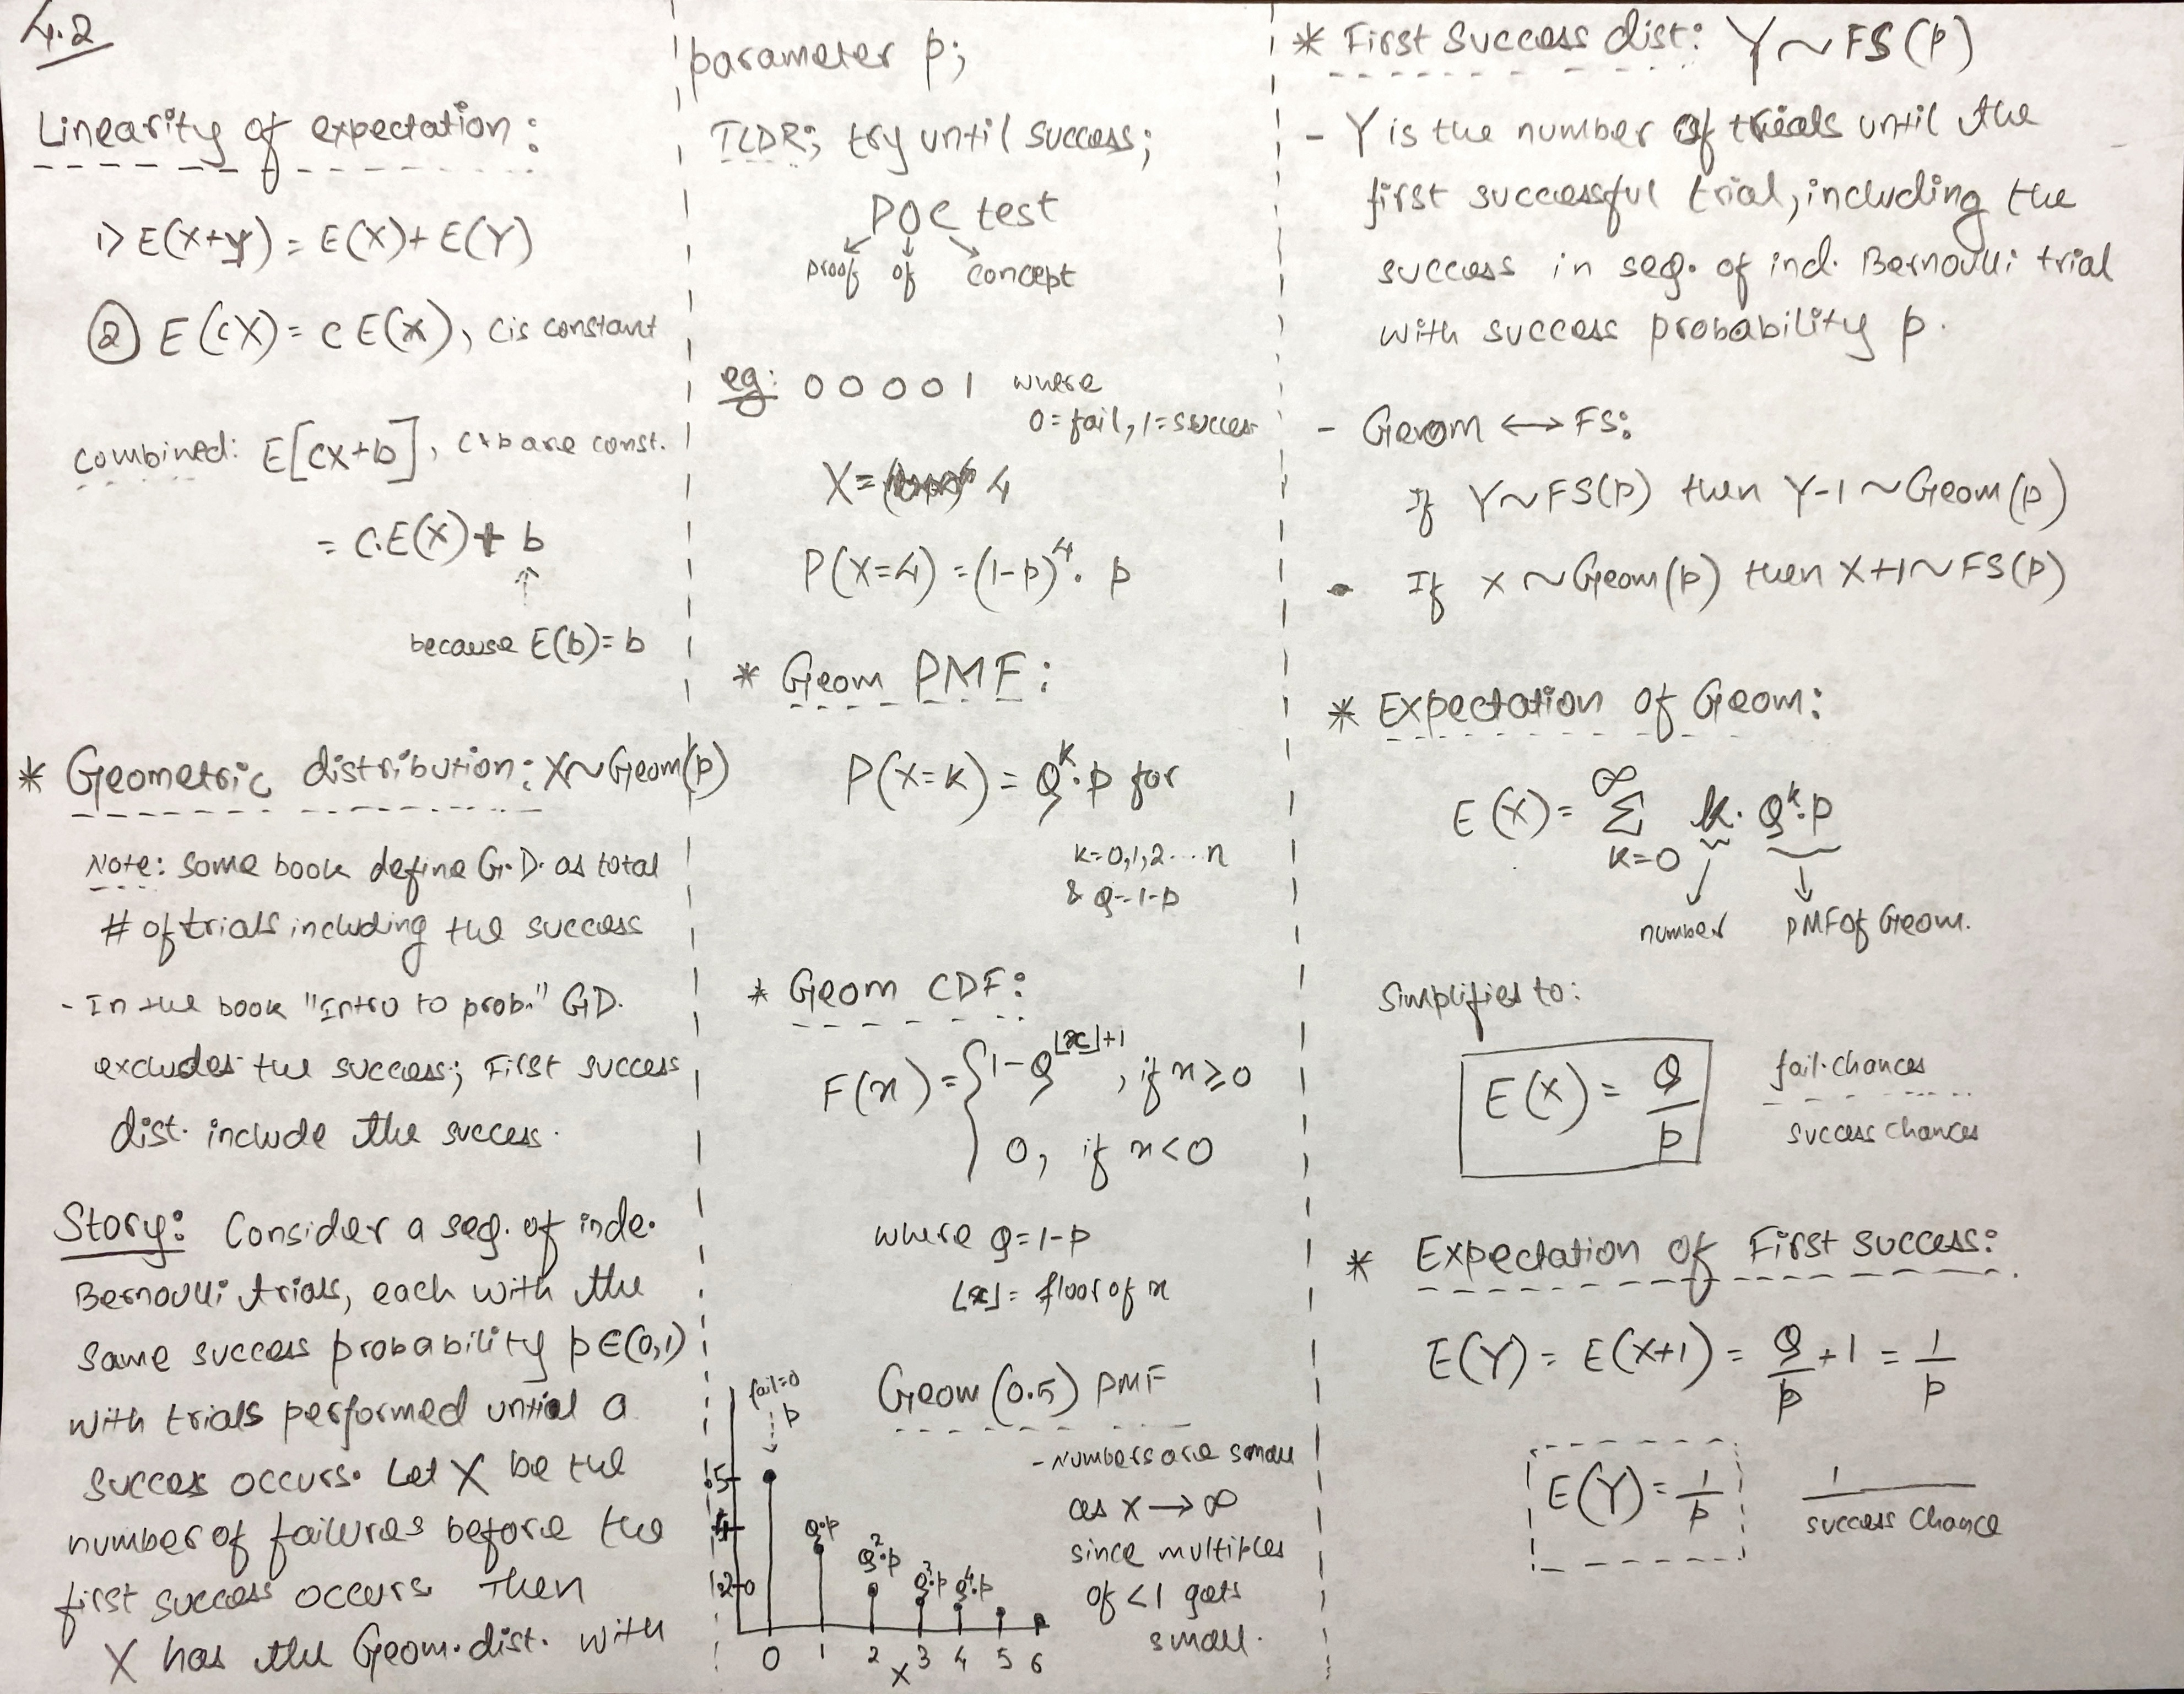 4.2
Linearity of expectation:
1) E(X+Y) = E(X) + E(Y)
② E(cX) = c E(X), c is constant
combined: E[cX+b], c & b are const.
= c.E(X) + b
↑
because E(b) = b
* Geometric distribution: X~Geom(p)
Note: Some book define G.D. as total
# of trials including the success
- In the book "Intro to prob." GD.
excludes the success; First success
dist. include the success.
Story: Consider a seq. of inde.
Bernoulli trials, each with the
same success probability p∈(0,1)
with trials performed until a
succes occurs. Let X be the
number of failures before the
first success occurs. Then
X has the Geom. dist. with
parameter p;
TLDR; try until success;
POC test
proof of concept
eg: 0 0 0 0 1 where
0=fail, 1=success
X = 4
P(X=4) = (1-p)^4 . p
* Geom PMF:
P(X=k) = Q^k . p for
k=0,1,2...n
& Q=1-p
* Geom CDF:
F(x) = { 1-Q^(⌊x⌋+1), if x ≥ 0
0, if x < 0
where Q=1-p
⌊x⌋ = floor of x
Geom (0.5) PMF
fail=0
p
.5
.4
.20
Q.p
Q².p
Q³.p
Q⁴.p
0 1 2 3 4 5 6
X
- Numbers are small
as X → ∞
since multiples
of <1 gets
small.
* First Success dist: Y ~ FS(p)
- Y is the number of trials until the
first successful trial, including the
success in seq. of ind. Bernoulli trial
with success probability p.
- Geom ↔ FS:
If Y~FS(p) then Y-1 ~ Geom(p)
If X ~ Geom(p) then X+1 ~ FS(p)
* Expectation of Geom:
E(X) = ∞ Σ k=0 k . Q^k . p
number
PMF of Geom.
Simplifies to:
E(X) = Q/p
fail chances
success chances
* Expectation of First success:
E(Y) = E(X+1) = Q/p + 1 = 1/p
E(Y) = 1/p
1
success chance